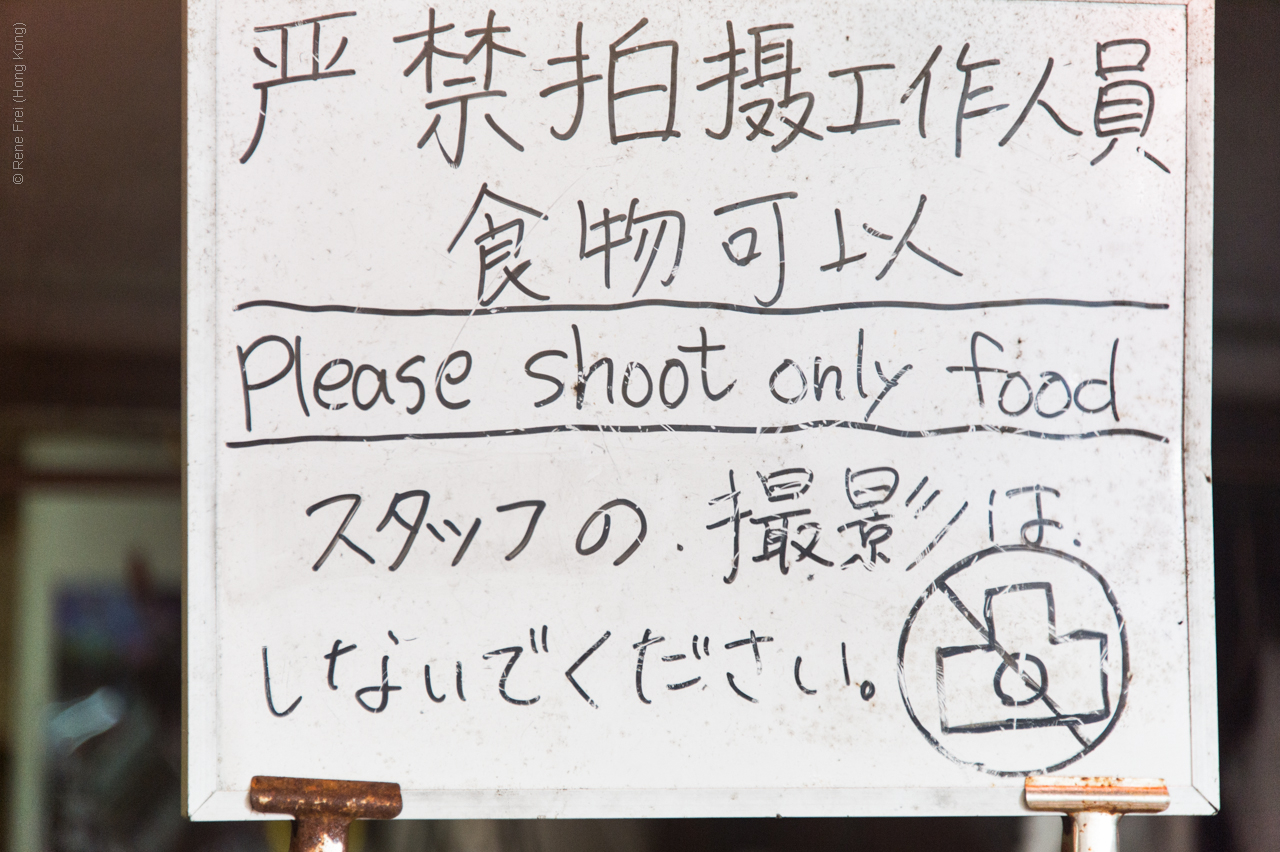 严禁拍摄工作人員
食物可以
Please shoot only food
スタッフの.撮影は.
しないでください。
© Rene Frei (Hong Kong)